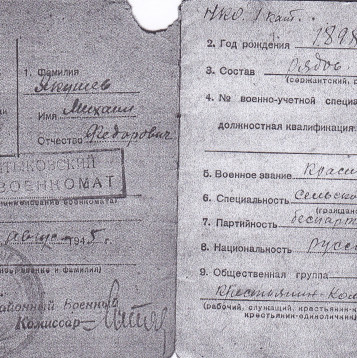 1. Фамилия
Якушев
Имя Михаил
Отчество Федорович
ВОЕНКОМАТ
(наименование военкомата)
август 1945 г.
Военный
Комиссар
НКО 1 кат.
2. Год рождения 1898
3. Состав Рядов
(сержантский,
4. № военно-учетной специ
должностная квалификация
5. Военное звание Красн
6. Специальность Сельско
(граждан
7. Партийность беспарт
8. Национальность русс
9. Общественная группа
крестьянин-кол
(рабочий, служащий, крестьянин-к
крестьянин-единоличн